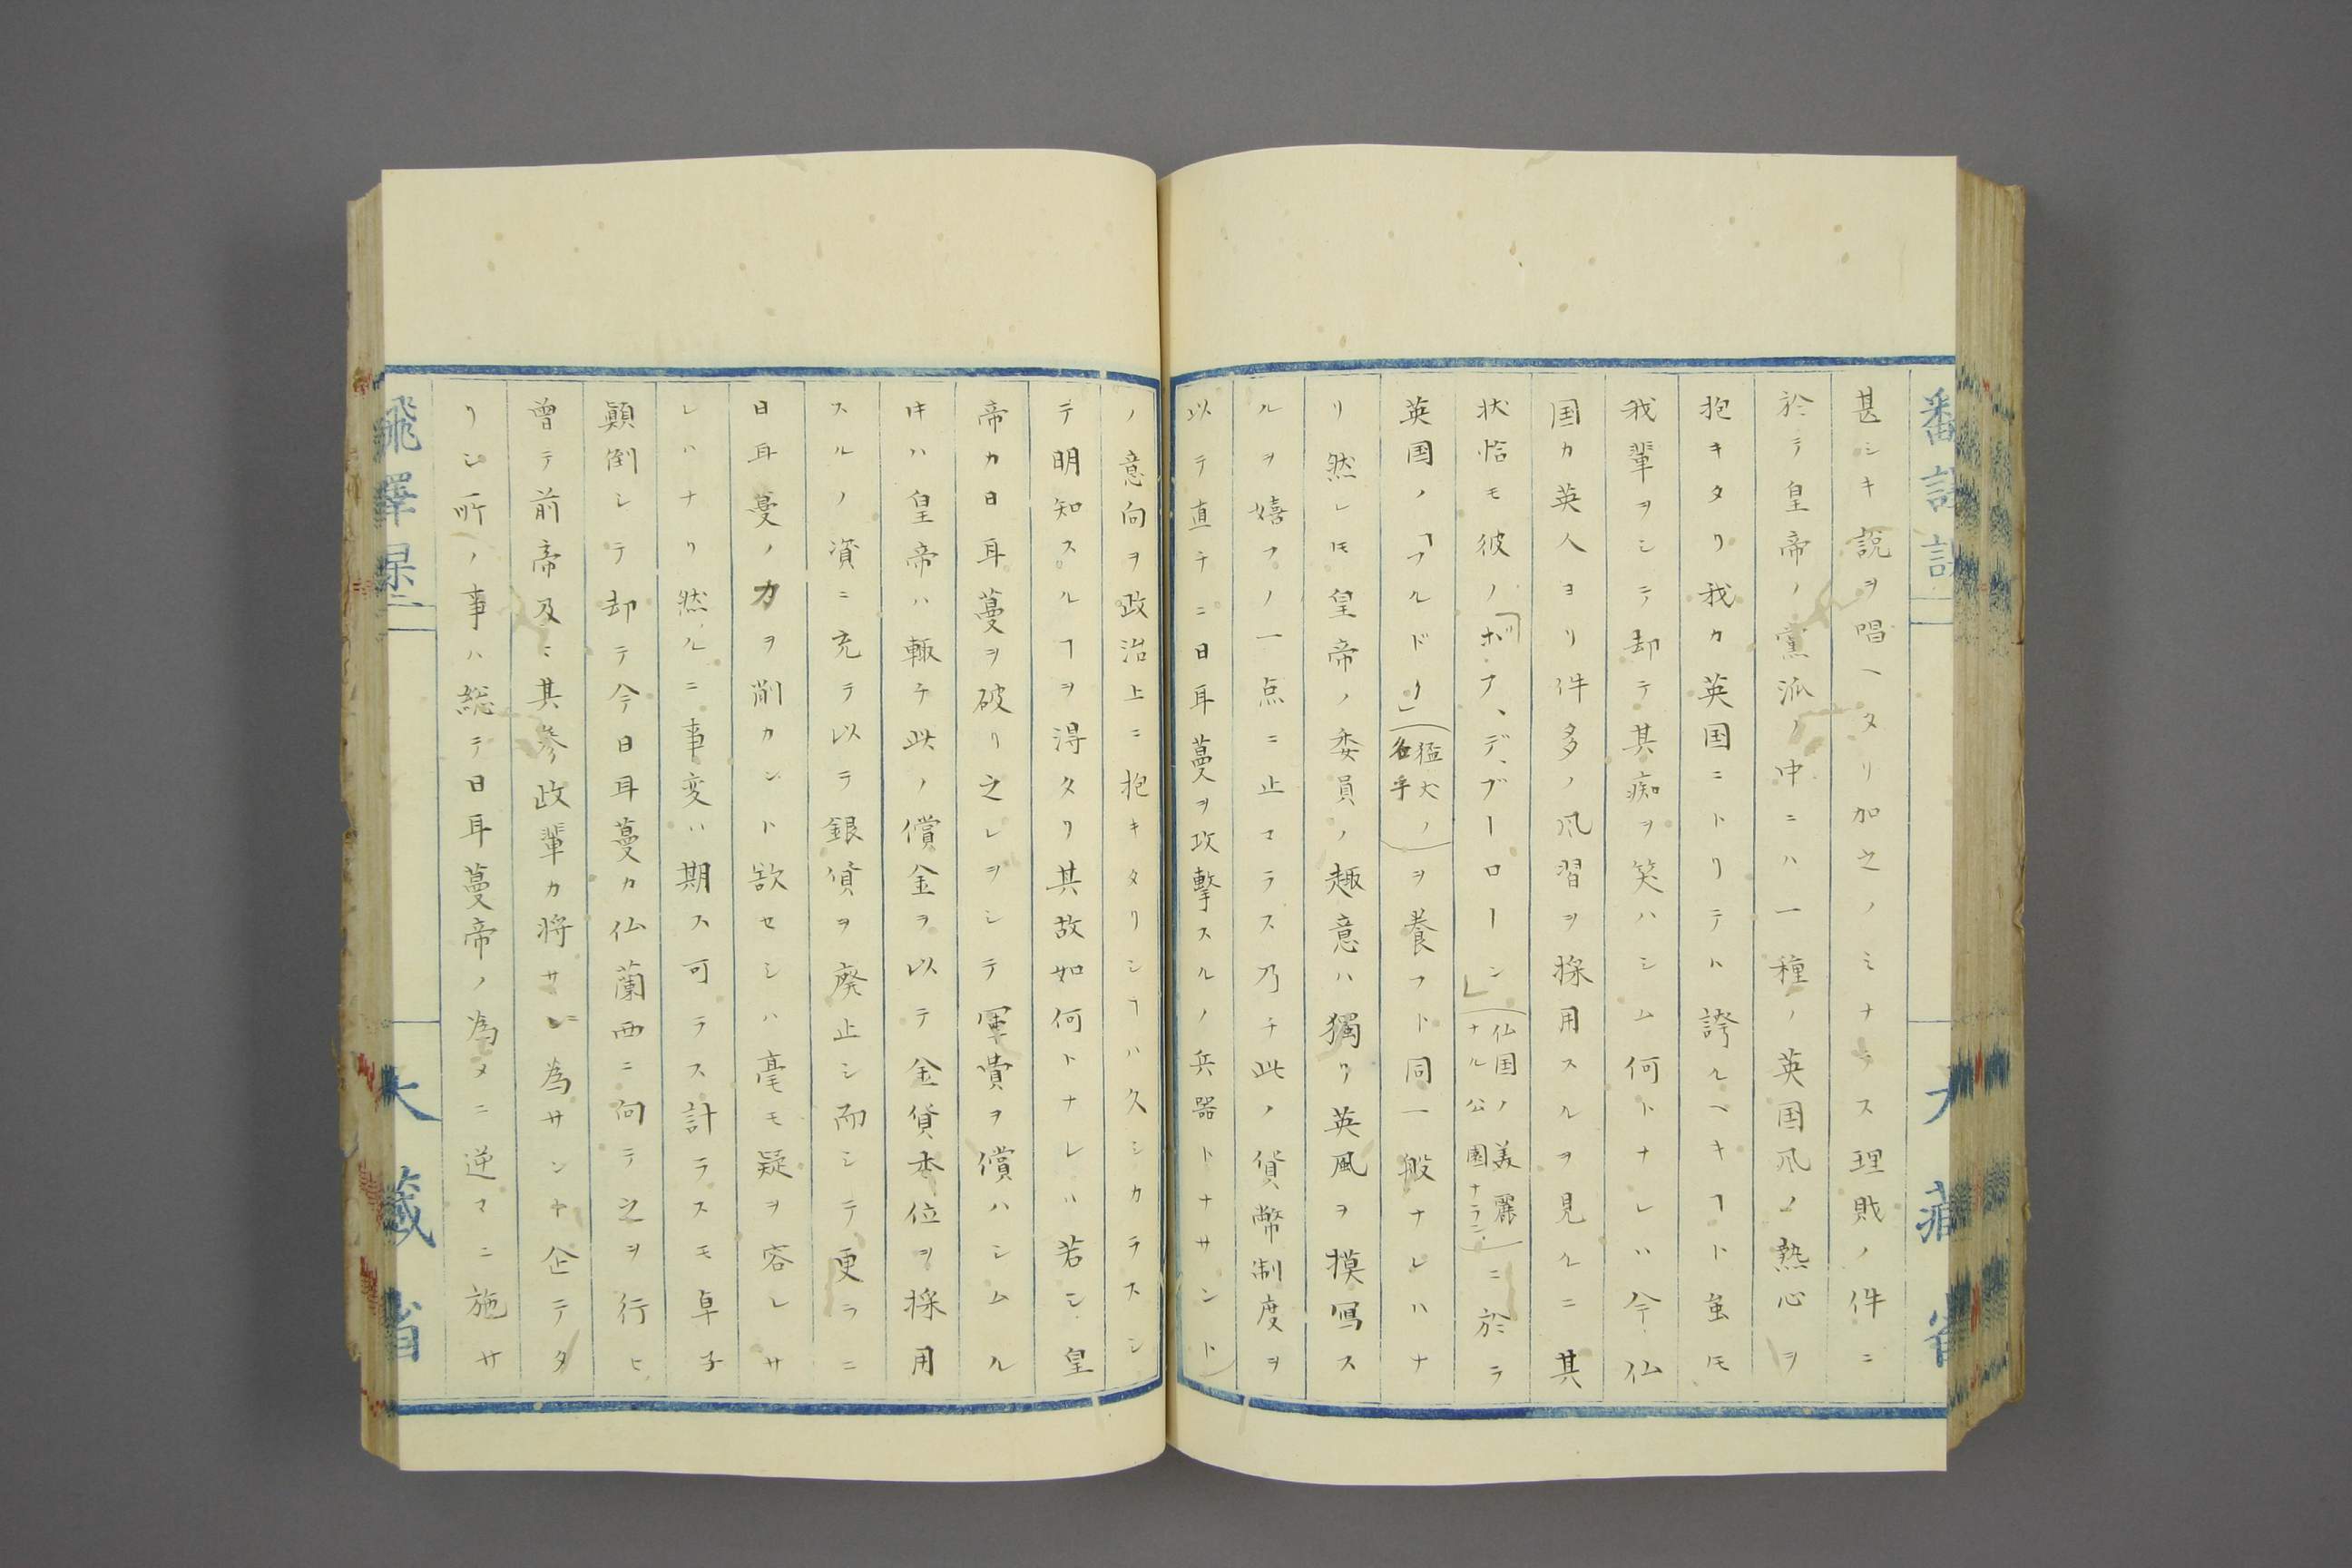 甚シキ説ヲ唱ヘタリ加之ノミナラス理財ノ件ニ
於テ皇帝ノ黨派ノ中ニハ一種ノ英国风ノ熱心ヲ
抱キタリ我カ英国ニトリテハ誇ルヘキヿト虽𪜈
我輩ヲシテ却テ其痴ヲ笑ハシム何トナレハ今仏
国カ英人ヨリ件多ノ风習ヲ採用スルヲ見ルニ其
状恰モ彼ノ「ボア、デ、ブーローン」(仏国ノ美麗ナル公園ナラン)ニ於テ
英国ノ「フルドク」(猛犬ノ名乎)ヲ養フト同一般ナレハナ
リ然レ𪜈皇帝ノ委員ノ趣意ハ獨リ英風ヲ摸写ス
ルヲ嬉フノ一点ニ止マラス乃チ此ノ貨幣制度ヲ
以テ直チニ日耳蔓ヲ攻撃スルノ兵器トナサント
ノ意向ヲ政治上ニ抱キタリシヿハ久シカラスシ
テ明知スルヿヲ得タリ其故如何トナレハ若シ皇
帝カ日耳蔓ヲ破リ之レヲシテ軍費ヲ償ハシムル
𪜈ハ皇帝ハ輙チ此ノ償金ヲ以テ金貨本位ヲ採用
スルノ資ニ充テ以テ銀貨ヲ廃止シ而シテ更ラニ
日耳蔓ノカヲ削カント欲セシハ毫モ疑ヲ容レサ
レハナリ然ルニ事変ハ期ス可ラス計ラスモ卓子
顛倒シテ却テ今日耳蔓カ仏蘭西ニ向テ之ヲ行ヒ
曾テ前帝及ニ其参政輩カ将サニ為サンヤ企テタ
リシ所ノ事ハ総テ日耳蔓帝ノ為メニ逆マニ施サ
大藏省